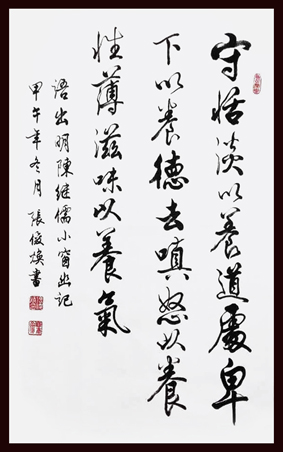 守恬淡以養道處卑
下以養德去嗔怒以養
性薄滋味以養氣
語出明陳继儒小窗幽记
甲午年冬月張俊焕書